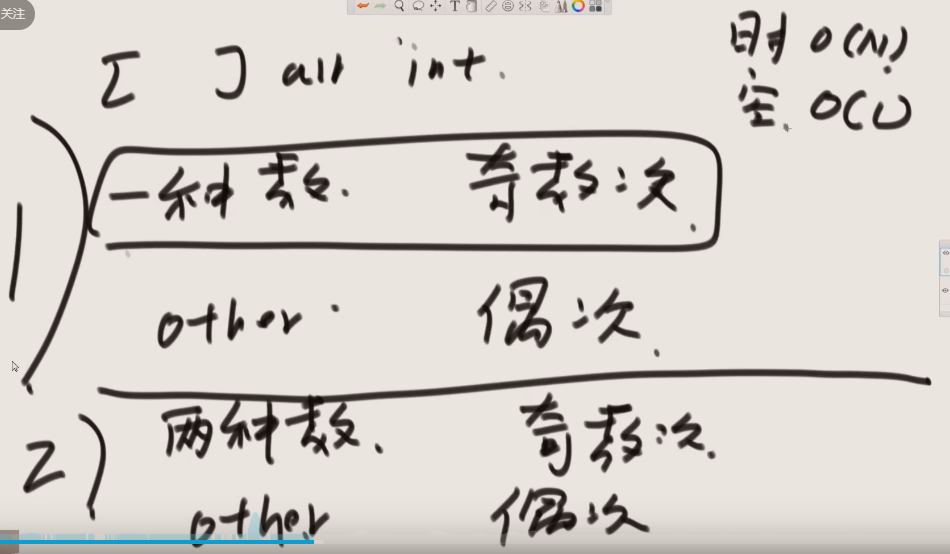 关注
[ ] all int.
时 O(N)
空 O(1)
1) 一种数. 奇数次.
other. 偶次.
2) 两种数. 奇数次.
other 偶次